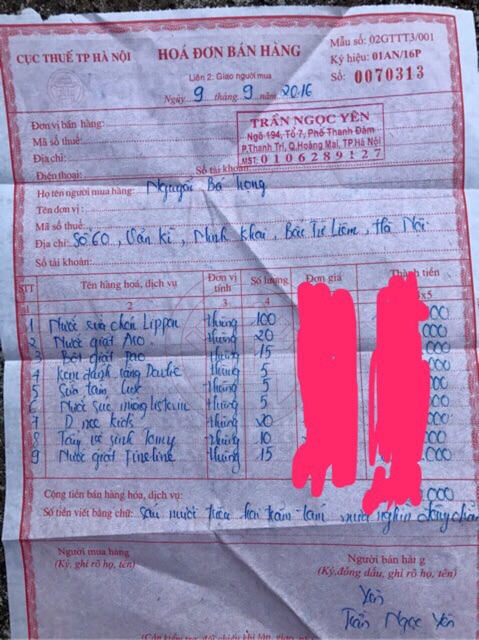 CỤC THUẾ TP HÀ NỘI
HOÁ ĐƠN BÁN HÀNG
Mẫu số: 02GTTT3/001
Ký hiệu: 01AN/16P
Số: 0070313
Liên 2: Giao người mua
Ngày 9 tháng 9 năm 2016
Đơn vị bán hàng:
TRẦN NGỌC YÊN
Mã số thuế:
Ngõ 194, Tổ 7, Phố Thanh Đàm
Địa chỉ:
P.Thanh Trì, Q.Hoàng Mai, TP.Hà Nội
Điện thoại: Số tài khoản:
MST: 0106289127
Họ tên người mua hàng: Nguyễn Bá
Tên đơn vị:
Mã số thuế:
Địa chỉ: Số 60, Văn Trì, Minh Khai, Bắc Từ Liêm, Hà Nội
Số tài khoản:
STT Tên hàng hoá, dịch vụ Đơn vị tính Số lượng Đơn giá Thành tiền
1 2 3 4 x5
1 Nước rửa chén Lippon thùng 100 000
2 Nước giặt thùng 20 000
3 Bột giặt thùng 15 000
4 Kem đánh răng thùng 5 000
5 Sữa tắm Lux thùng 5 000
6 Nước súc miệng thùng 5 000
7 D nee kids thùng 20 000
8 Tẩy vệ sinh thùng 10 000
9 Nước giặt Fineline thùng 15 000
Cộng tiền bán hàng hóa, dịch vụ: 000
Số tiền viết bằng chữ: sáu mươi triệu hai trăm tám mươi nghìn đồng chẵn
Người mua hàng
(Ký, ghi rõ họ, tên)
Người bán hàng
(Ký, đóng dấu, ghi rõ họ, tên)
Yên
Trần Ngọc Yên